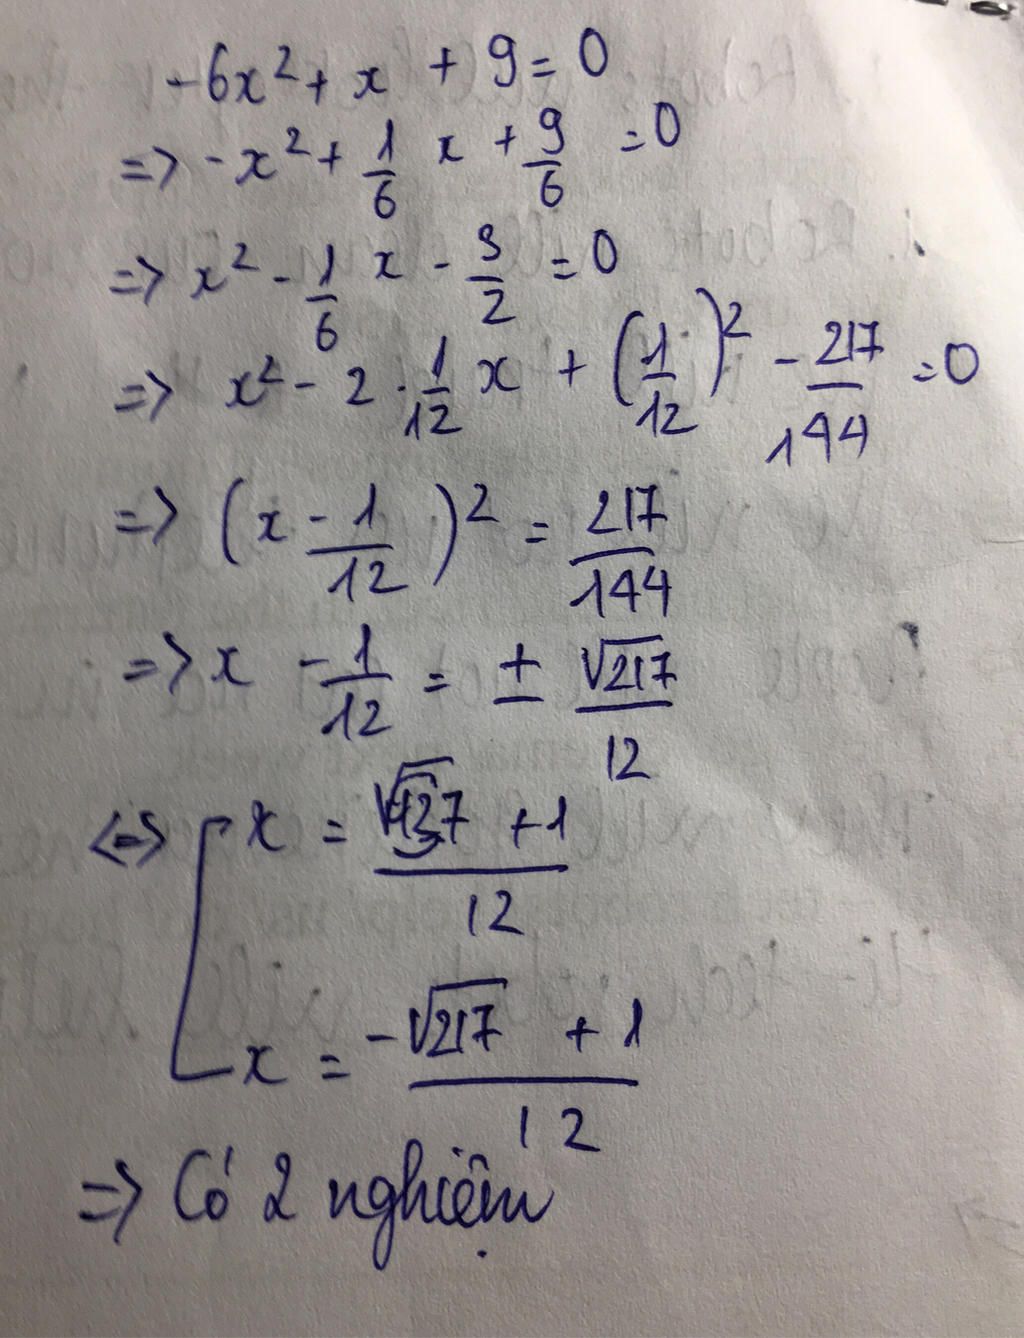 -6x² + x + 9 = 0
=> -x² + 1/6 x + 9/6 = 0
=> x² - 1/6 x - 3/2 = 0
=> x² - 2 . 1/12 x + (1/12)² - 217/144 = 0
=> (x - 1/12)² = 217/144
=> x - 1/12 = ± √217/12
<=> [ x = (√ +1)/12
x = (-√217 + 1)/12
=> Có 2 nghiệm